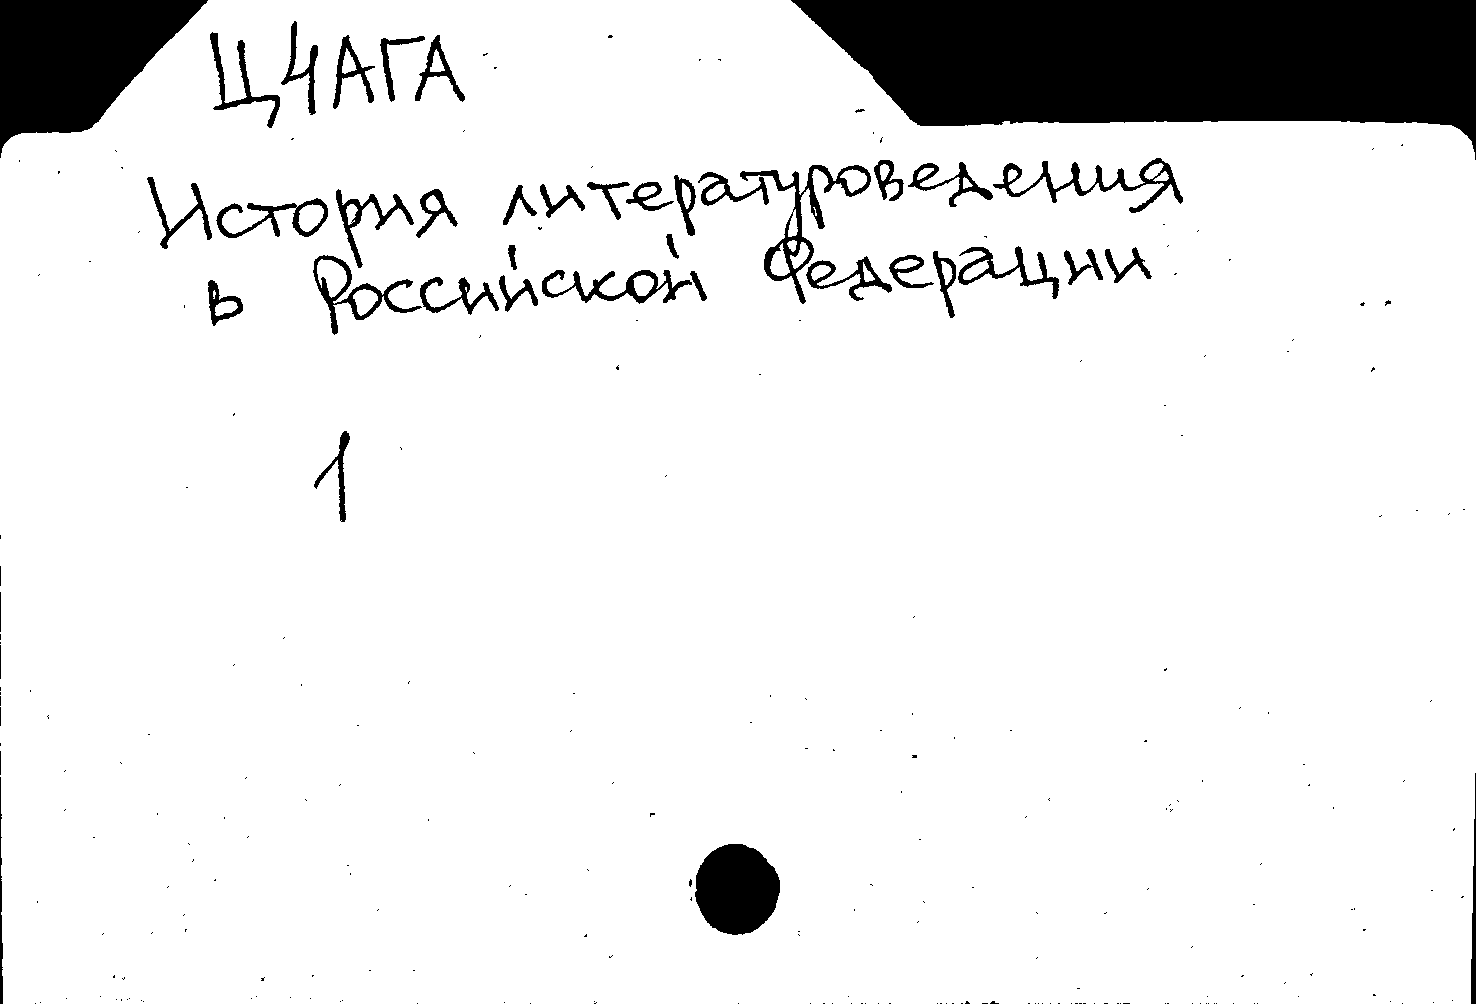 ЦЧАГА
История литературоведения
в Российской Федерации
1